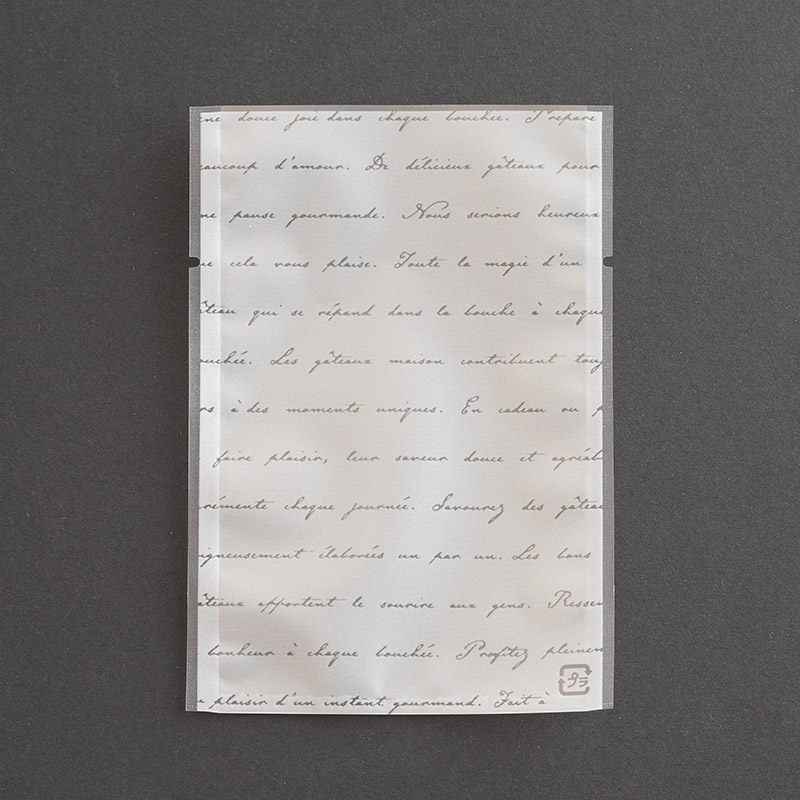 ne douce joie dans chaque bouchée. Prépare
eaucoup d'amour. De délicieux gâteaux pour
ne pause gourmande. Nous serions heureux
ue cela vous plaise. Toute la magie d'un
âteau qui se répand dans la bouche à chaque
ouchée. Les gâteaux maison contribuent touj
rs à des moments uniques. En cadeau ou p
faire plaisir, leur saveur douce et agréab
rémente chaque journée. Savourez des gâteau
igneusement élaborées un par un. Les bons
âteaux apportent le sourire aux gens. Ressen
bonheur à chaque bouchée. Profitez pleinem
プラ
plaisir d'un instant gourmand. Fait à